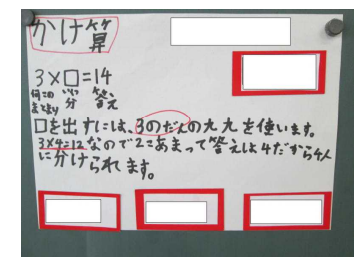 かけ算
3×□=14
何この いくつ 答え
まとまり 分
□を出すには、3のだんの九九を使います。
3×4=12なので2こあまって答えは4だから4人
に分けられます。